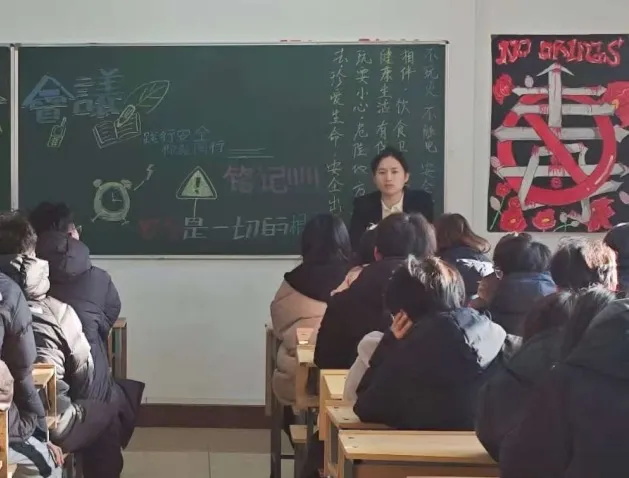 會議
践行安全
你我同行
笔记!!!!!
是一切的根
不玩火 不触电 安
相伴·饮食卫
健康生活·有
玩耍小心·危险
去·珍爱生命·安全出
NO DRUGS
毒